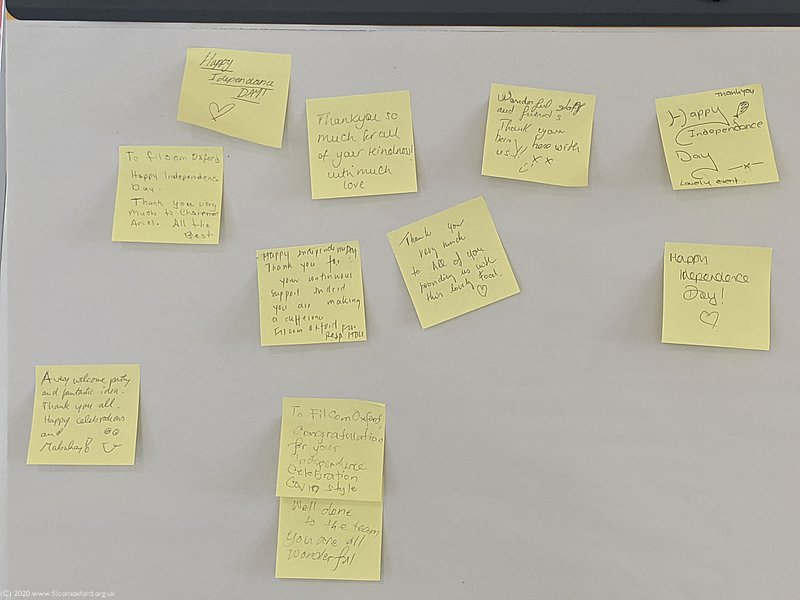 Happy
Idependance
DAY!
Thankyou so
much for all
of your kindness!
with much
love
Wonderful staff
and friends
Thank you
being here with
us!! xx
Thankyou
Happy
Independence
Day
Lovely event.
To filcom Oxford
Happy Independence
Day.
Thank you very
much to
Ariel. All the
Best
Happy
Thank you for
your continuous
support indeed
you are making
a difference
Filcom Oxford
Thank you
very much
to All of you
providing us with
this lovely food.
Happy
Idependence
Day!
A very welcome party
and fantastic idea.
Thank you all.
Happy celebrations
and
Mabuhay
To FilComOxford,
Congratulation
for your
Independence
Celebration
Covid style
Well done
to the team
You are all
wonderful
(C) 2020 www.filcomoxford.org.uk